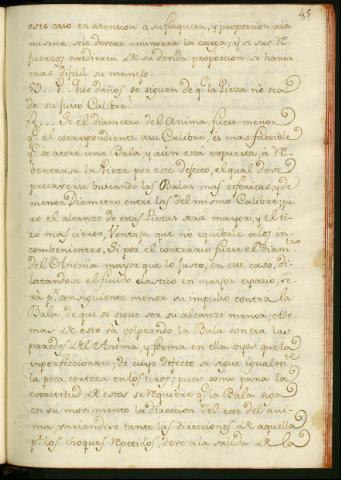 45
este caso en atencion a su flaquera, y proporcion a la
misma, se devera aminorar la carga; y si sus Re
fuerzos excedieren de su devida proporcion se haria
mas dificil su manejo.
P. Que daños se siguen de qe la Pieza no sea
de su justo Calibre?
R. Si el diametro del Anima, fuese menor
qe el correspondiente a su Calibre, es mas factible
qe se atore una Bala, y aun está expuesta, à Re
bentarse la Pieza por este defecto, el qual deve
precaverse buscando las Balas mas esfericas, y de
menor Diametro entre las del mismo Calibre; pe
ro el alcanze de estas Piezas sera mayor, y el ti
ro mas cierto, Ventaja que no equibale a los in
combenientes. Si por el contrario fuese el Diam
tro
del Anima mayor que lo justo, en este caso, di
latandose el fluido elastico en mayor espacio, se
rà pr consiguiente menor su impulso contra la
Bala, de que se sigue ser su alcanze menor; Ade
mas de esto và golpeando la Bala contra las
paredes del Anima, y forma en ella oyos que la
imperfeccionan; de cuyo defecto se sigue igualm
te
la poca certeza en los tiros; pues como para la
exactitud de estos se Requiere qe la Bala siga
en su movimiento la direccion del exe del ani
ma, variandose tanto las direcciones de aquella
pr los choques Repetidos, deve a la salida de la